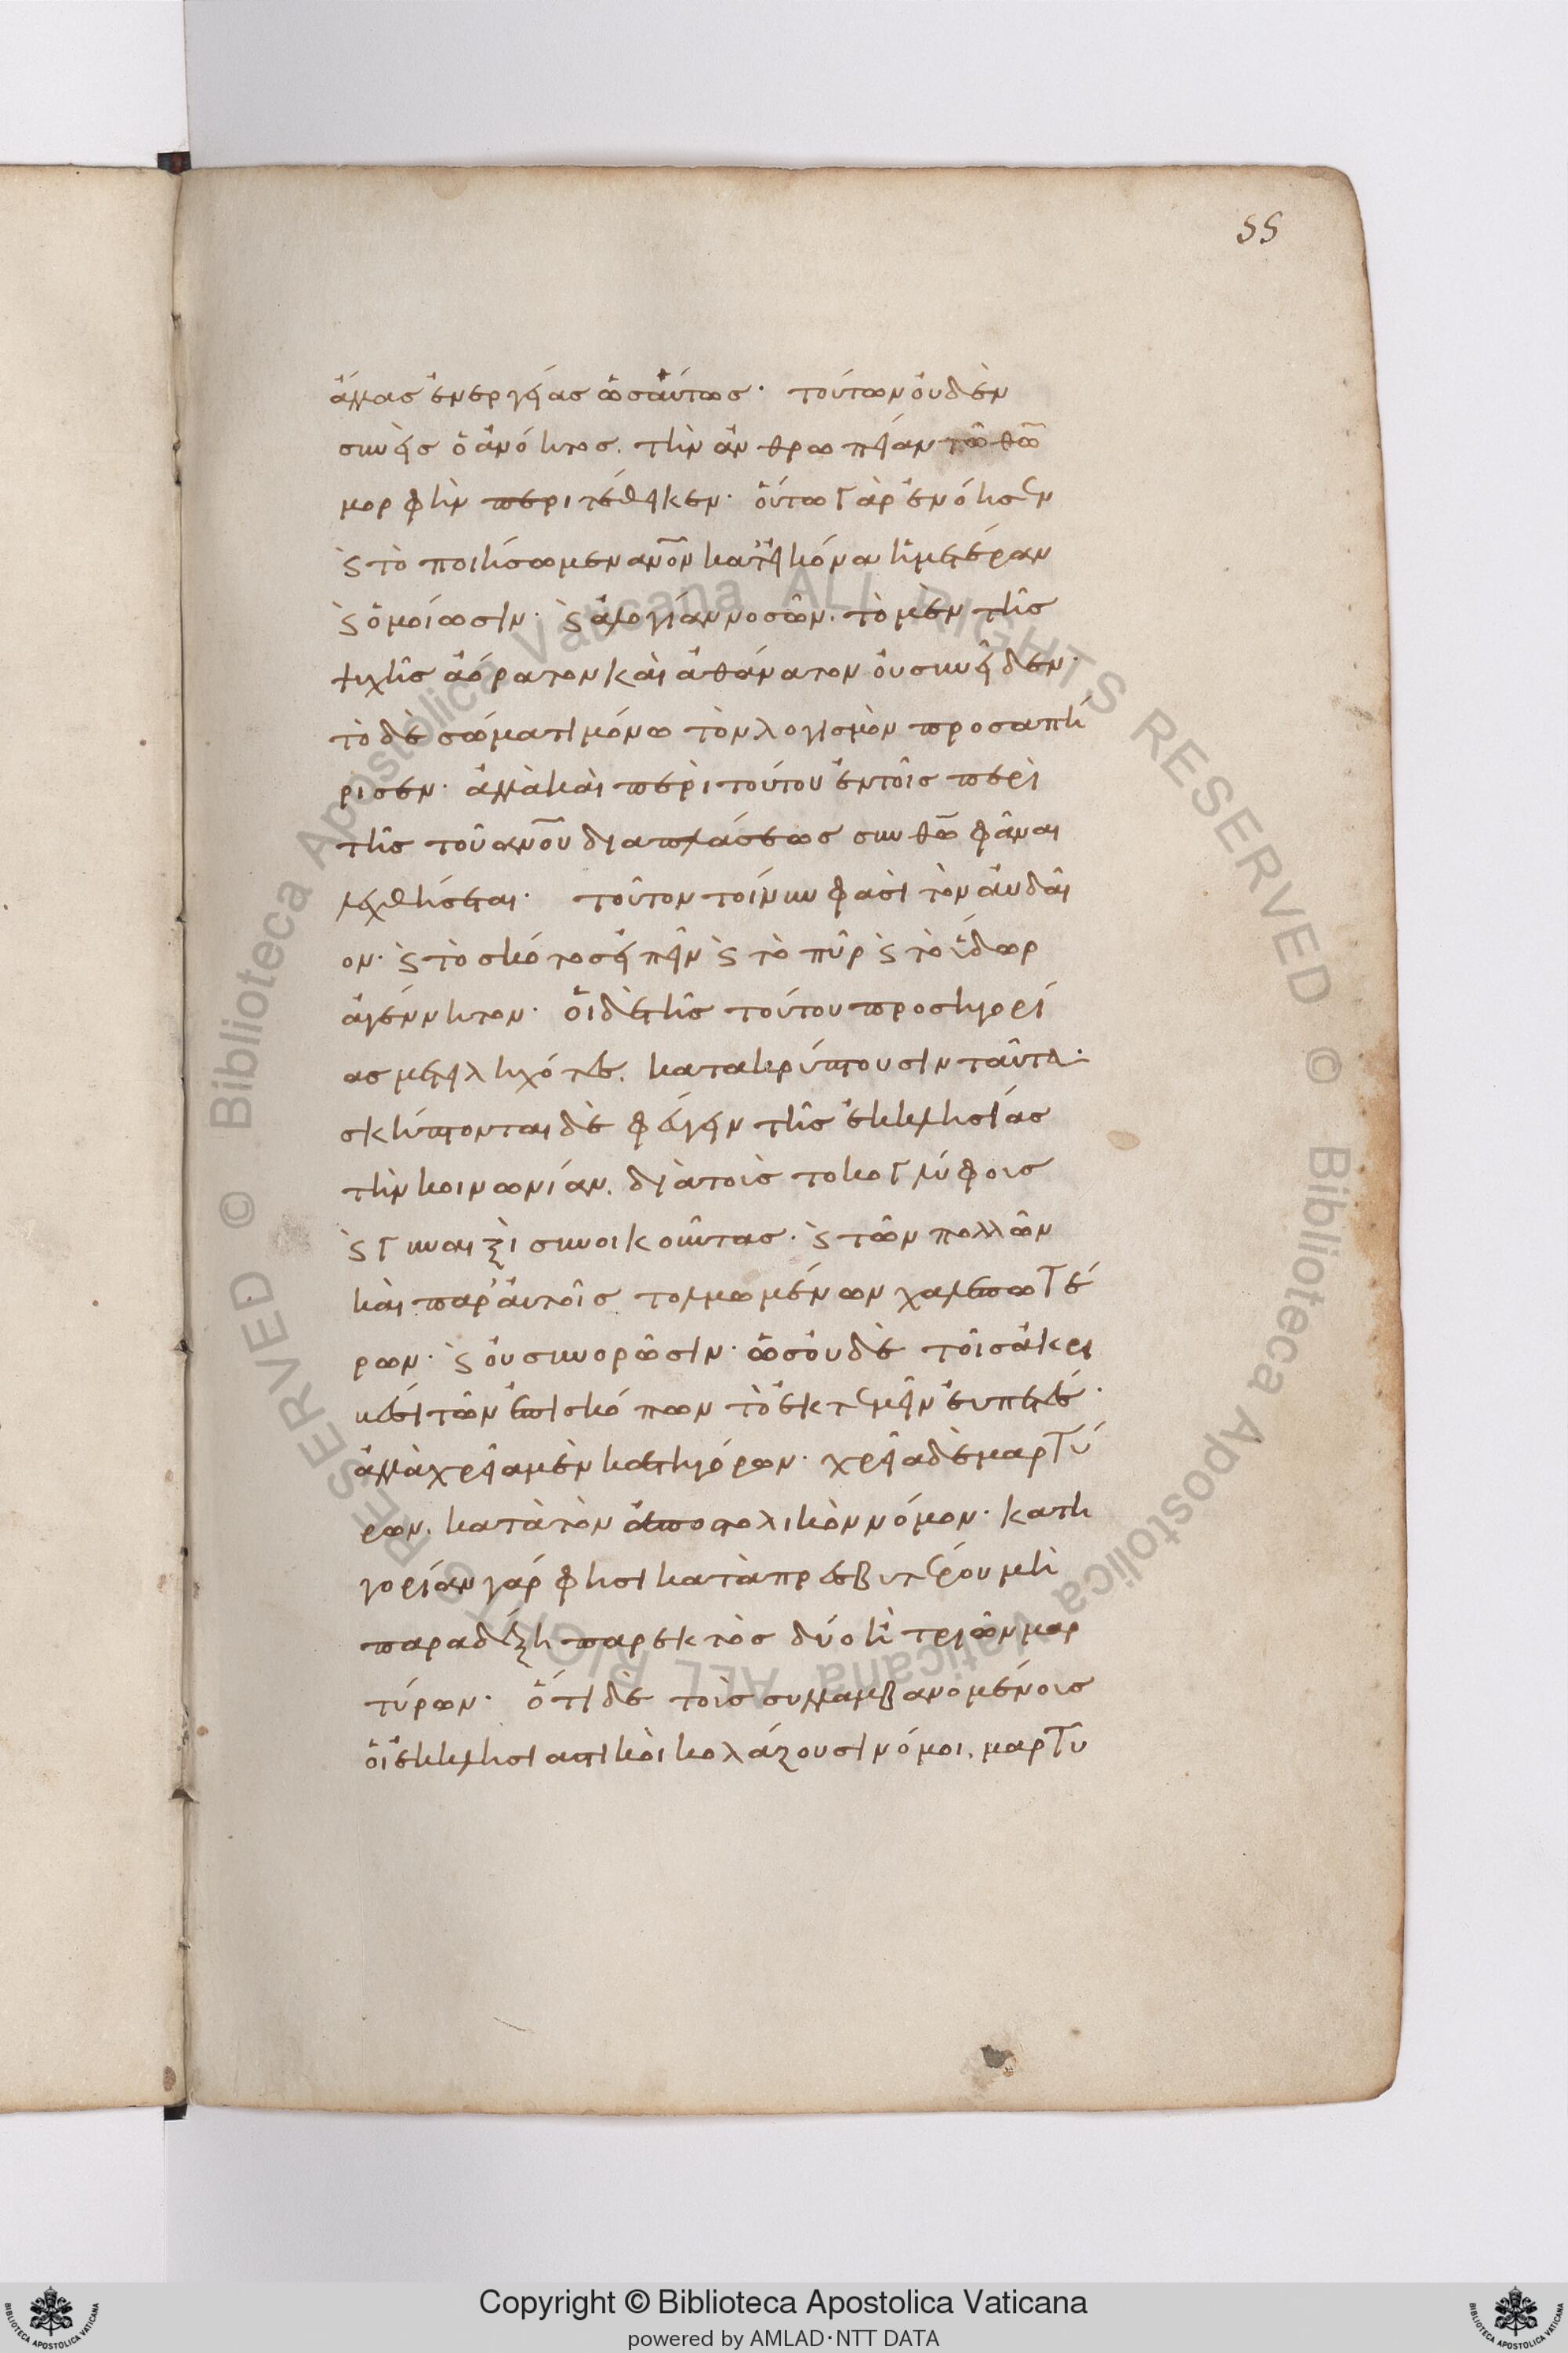 55
ἄλλας ἐνεργείας ὡσαύτως· τούτων οὐδὲν
συνεὶς ὁ ἀνόητος. τὴν ἀνθρωπείαν τῶ θω
μορφὴν περιτέθηκεν· οὕτω γὰρ ἐνόησεν
ϛ τὸ ποιήσωμεν ανον κατ' εἰκόνα ἡμετέραν
ϛ ὁμοίωσιν· ϛ ἀλογίαν νοσῶν. τὸ μὲν τῆς
ψυχῆς ἀόρατον καὶ ἀθάνατον οὐ συνεῖδεν·
τὸ δὲ σώματι μόνω τὸν λογισμὸν προσαπή
ρισεν· ἀλλὰ καὶ περὶ τούτου ἐν τοῖς περὶ
τῆς τοῦ ανου διαπλάσεως συν θω φάναι
λεχθήσεται· τοῦτον τοίνυν φασὶ τὸν αὐδαῖ
ον· ϛ τὸ σκότος εἰπεῖν ϛ τὸ πῦρ ϛ τὸ ὕδωρ
ἀγέννητον· οἱ δὲ τῆς τούτου προσηγορί
ας μετειληχότες. κατακρύπτουσιν ταῦτα·
σκήπτονται δὲ φεύγειν τῆς ἐκκλησίας
τὴν κοινωνίαν. διὰ τοὺς τοκογλύφοις
ϛ γυναιξὶ συνοικοῦντας· ϛ τῶν πολλῶν
καὶ παρ' αὐτοῖς τολμωμένων χαλεπωτέ
ρων· ϛ οὐ συνορῶσιν· ὡς οὐδὲ τοῖς ἀκρι
βέσι τῶν ἐπισκόπων τὸ ἐκτεμεῖν εὐπετές·
ἀλλὰ χρεῖα μὲν κατηγόρων· χρεῖα δὲ μαρτύ
ρων. κατὰ τὸν ἀποστολικὸν νόμον· κατη
γορίαν γάρ φησι κατὰ πρεσβυτέρου μὴ
παραδέξη παρεκτὸς δύο ἢ τριῶν μαρ
τύρων· ὅτι δὲ τοὺς συλλαμβανομένοις
οἱ ἐκκλησιαστικοὶ κολάζουσι νόμοι. μαρτυ
Copyright © Biblioteca Apostolica Vaticana
powered by AMLAD·NTT DATA